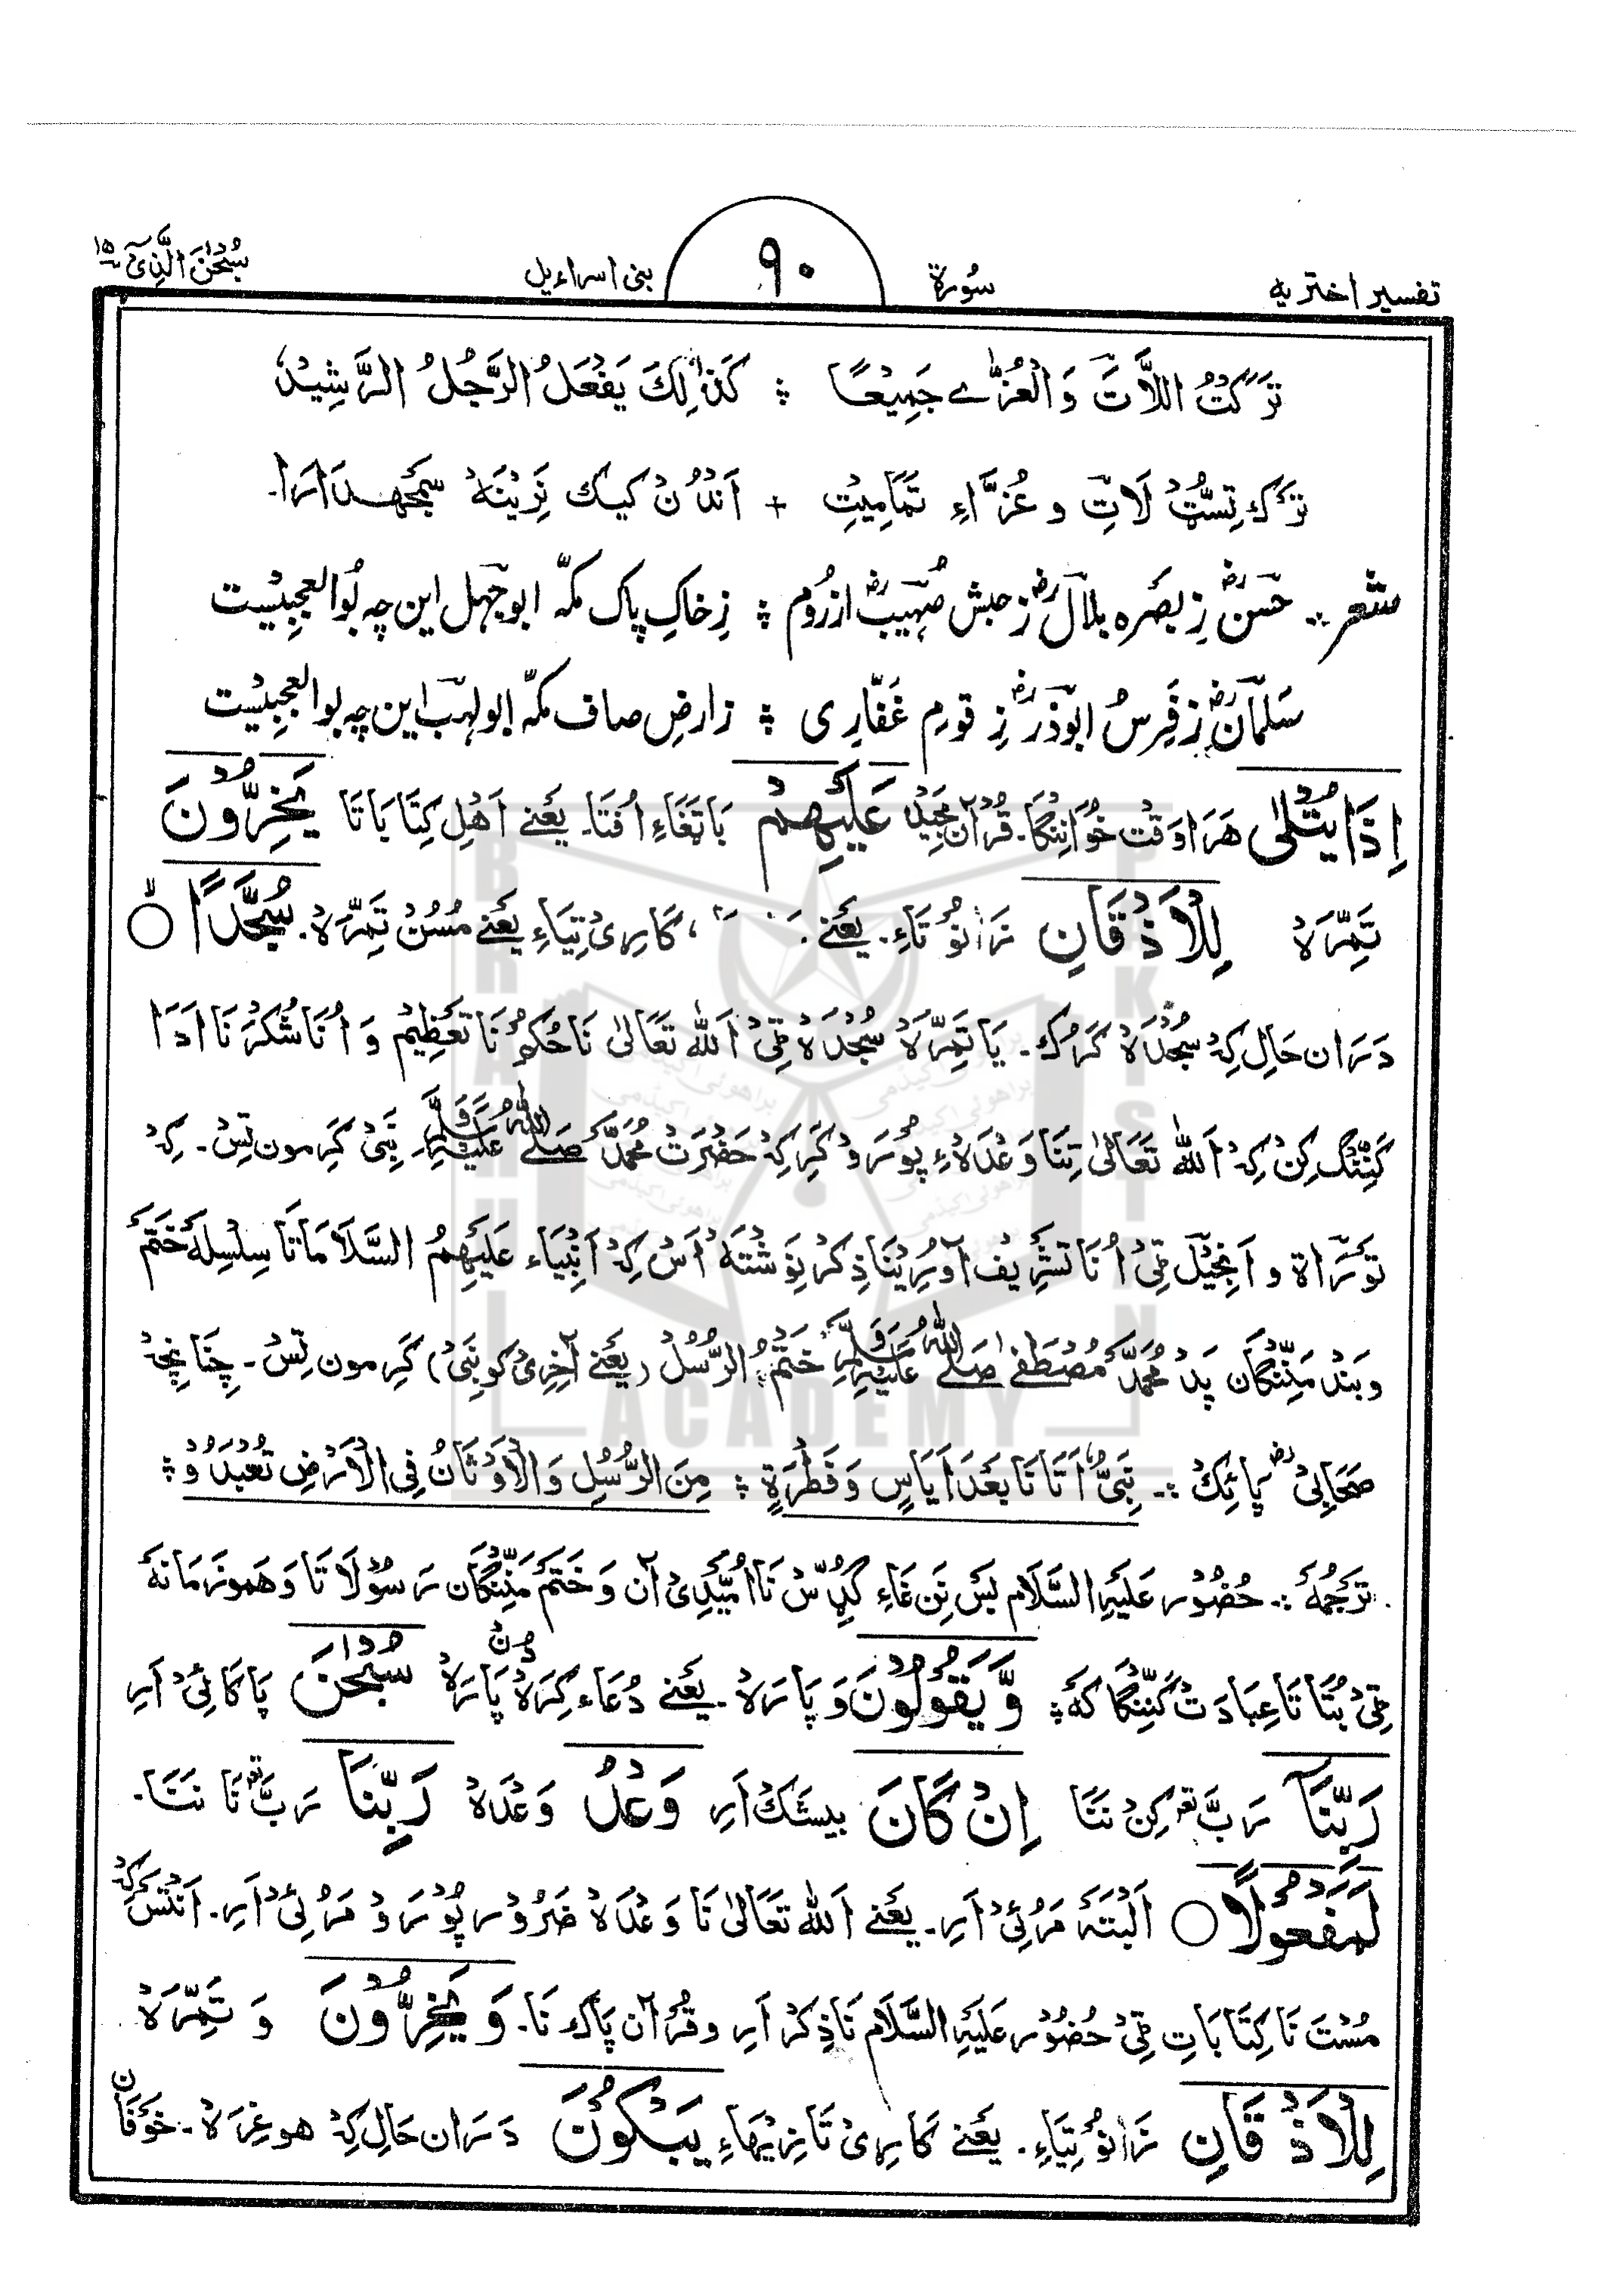 تفسیر اختریه سُورة ٩٠ بنی اسراءیل سُبْحٰنَ الَّذِیْٓ ١٥
تَرَکْتُ اللَّاتَ وَالْعُزّٰے جَمِیْعًا ؛ کَذٰلِکَ یَفْعَلُ الرَّجُلُ الرَّشِیْدُ
تَرک تِسُّٹ لَاتِ و عُزَّاءِ تَمَامِیتِ + اَنْدُنْ کیک نَرِیْنَہْ سَمَجْھـدَارَا۔
شعر ؞ حسن رض زِ بصَرہ بلال رض ز حبش صُہیب رض از رُوم ؛ زِ خاکِ پاک مکّہ ابوجہل این چہ بُوالعجبِیْست
سَلمان رض ز فَرِسُ ابوذر رض زِ قومِ غَفّارِی ؛ ز ارضِ صاف مکّہ ابولہب این چہ بوالعجبِیْست
اِذَا یُتْلٰی هَرَا وَقْت خُوَانِنْگا۔ قُرْآن مَجِیْد عَلَیْهِمْ بَاتَغَاءِ اُفتَا۔ یَعْنے اَهْلِ کِتَابَاتَا یَخِرُّوْنَ
تَمِّرَہْ لِلْاَذْقَانِ زَانوُ تَاءِ۔ یَعْنے ، کَارِیْ تِیَاءِ یَعْنے مُسُنْ تَمِّرَہْ۔ سُجَّدًا ○
دَرَان حَالِ کِہْ سُجْدَہْ کَرُک۔ یَا تَمِّرَہْ سُجْدَہْ ٹِیْ اَللّٰہ تَعَالٰی نَا حُکم نَا تَعْظِیْم وَ اُنَا شُکر نَا اَدَا
کَنِنْگ کِنْ کِہْ اَللّٰہ تَعَالٰی تِنَا وَعْدَہْءِ پُوْرَوْ کَرِ کِہْ حَضْرَتْ مُحَمَّد صَلَّے اللّٰهُ عَلَیْهِ وَسَلَّم۔ نَبِیْ کَرِ مون تِسْ۔ کِہْ
تَوْرَاة و اَنْجِیْل ٹِیْ اُنَا تَشْرِیف آوَرِیْنَا ذِکرْ نَوِشْتَہْ اَسْ کِہْ اَنْبِیَاء عَلَیْهِمُ السَّلَامَاتَا سِلْسِلَہ خَتْم
وبَنْد مَنِنْگَان پَدْ مُحَمَّد مُصْطَفٰے صَلَّے اللّٰهُ عَلَیْهِ وَسَلَّم خَتْمُ الرُّسُلْ (یَعْنے آخِرِیْ کو نَبِیْ) کَرِ مون تِسْ۔ چِنَانِچہْ
صَحَابِیْ رض پَائِکْ ؞ نَبِیٌّ اَتَانَا بَعْدَ اَیَاسٍ وَفَطْرَةٍ ؛ مِنَ الرُّسُلِ وَالْاَوْثَانُ فِی الْاَرْضِ تُعْبَدُوْ ؛
تَرْجُمَہْ ؞ حُضُوْر عَلَیْہِ السَّلَام بَس نَن غَاءِ گُڈّس نَااُمَّیْدِیْ آن وَ خَتْم مَنِّنْگَان رَسُوْلَاتَا وَهَمو زَمَانَہ
ٹِیْ بُتَّاتَا عِبَادَتْ کَنِنْگاکَہ ؛ وَّیَقُوْلُوْنَ وَ پَارَہْ۔ یَعْنے دُعَاء کِرَہْ پَارَہْ سُبْحٰنَ پَاکَائِیْ اَرِ
رَبِّنَآ رَبَّ کِنْ نَنَا اِنْ کَانَ بیشَکْ اَرِ وَعْدُ وَعْدَہْ رَبِّنَا رَبَّ نَا نَنَا۔
لَمَفْعُوْلًا ○ اَلْبَتَہ مَرُئِیْ اَرِ۔ یَعْنے اَللّٰہ تَعَالٰی نَا وَعْدَہْ ضَرُوْر پُوْرَوْ مَرُئِیْ اَرِ۔ اَنْتَسْ کِہْ
مُسْتَ نَا کِتَابَاتِ ٹِیْ حُضُوْر عَلَیْہِ السَّلَام نَا ذِکرْ اَرِ و قُرْآن پَاک نَا۔ وَیَخِرُّوْنَ وَ تَمِّرَہْ
لِلْاَذْقَانِ زَانوُ تِیَاءِ۔ یَعْنے کَارِیْ تَا زِیْہَاءِ یَبْکُوْنَ دَرَان حَالِ کِہْ هوغِرَہْ۔ خَوْفَان